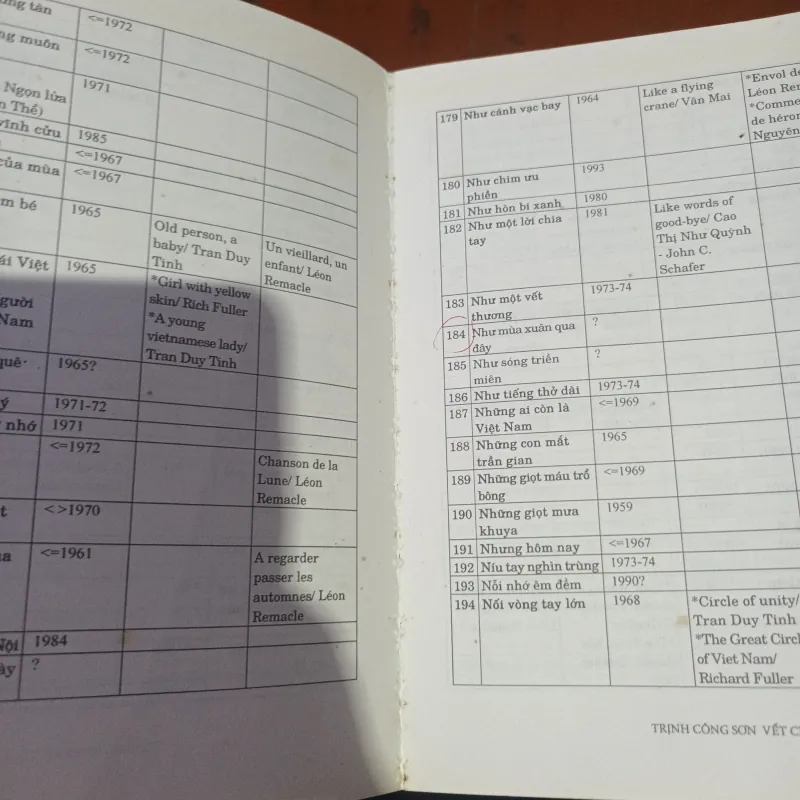 tân
<=1972
muôn
<=1972
Ngọn lửa
1971
Thể)
vĩnh cửu
1985
<=1967
của mùa
<=1967
bé
1965
Old person, a
baby/ Tran Duy
Tinh
Un vieillard, un
enfant/ Léon
Remacle
Việt
1965
*Girl with yellow
skin/ Rich Fuller
*A young
vietnamese lady/
Tran Duy Tinh
Nam
quê
1965?
ý
1971-72
nhớ
1971
<=1972
Chanson de la
Lune/ Léon
Remacle
<>1970
<=1961
A regarder
passer les
automnes/ Léon
Remacle
Nội
1984
?
179
Như cánh vạc bay
1964
Like a flying
crane/ Vân Mai
*Envol de
Léon
*Comme
de héron
Nguyên
180
Như chim ưu
phiền
1993
181
Như hòn bi xanh
1980
182
Như một lời chia
tay
1981
Like words of
good-bye/ Cao
Thị Như Quỳnh
- John C.
Schafer
183
Như một vết
thương
1973-74
184
Như mùa xuân qua
đây
?
185
Như sóng triền
miên
?
186
Như tiếng thở dài
1973-74
187
Những ai còn là
Việt Nam
<=1969
188
Những con mắt
trần gian
1965
189
Những giọt máu trổ
bông
<=1969
190
Những giọt mưa
khuya
1959
191
Nhưng hôm nay
<=1967
192
Níu tay nghìn trùng
1973-74
193
Nỗi nhớ êm đềm
1990?
194
Nối vòng tay lớn
1968
*Circle of unity/
Tran Duy Tinh
*The Great
of Viet Nam/
Richard Fuller
TRỊNH CÔNG SƠN VẾT